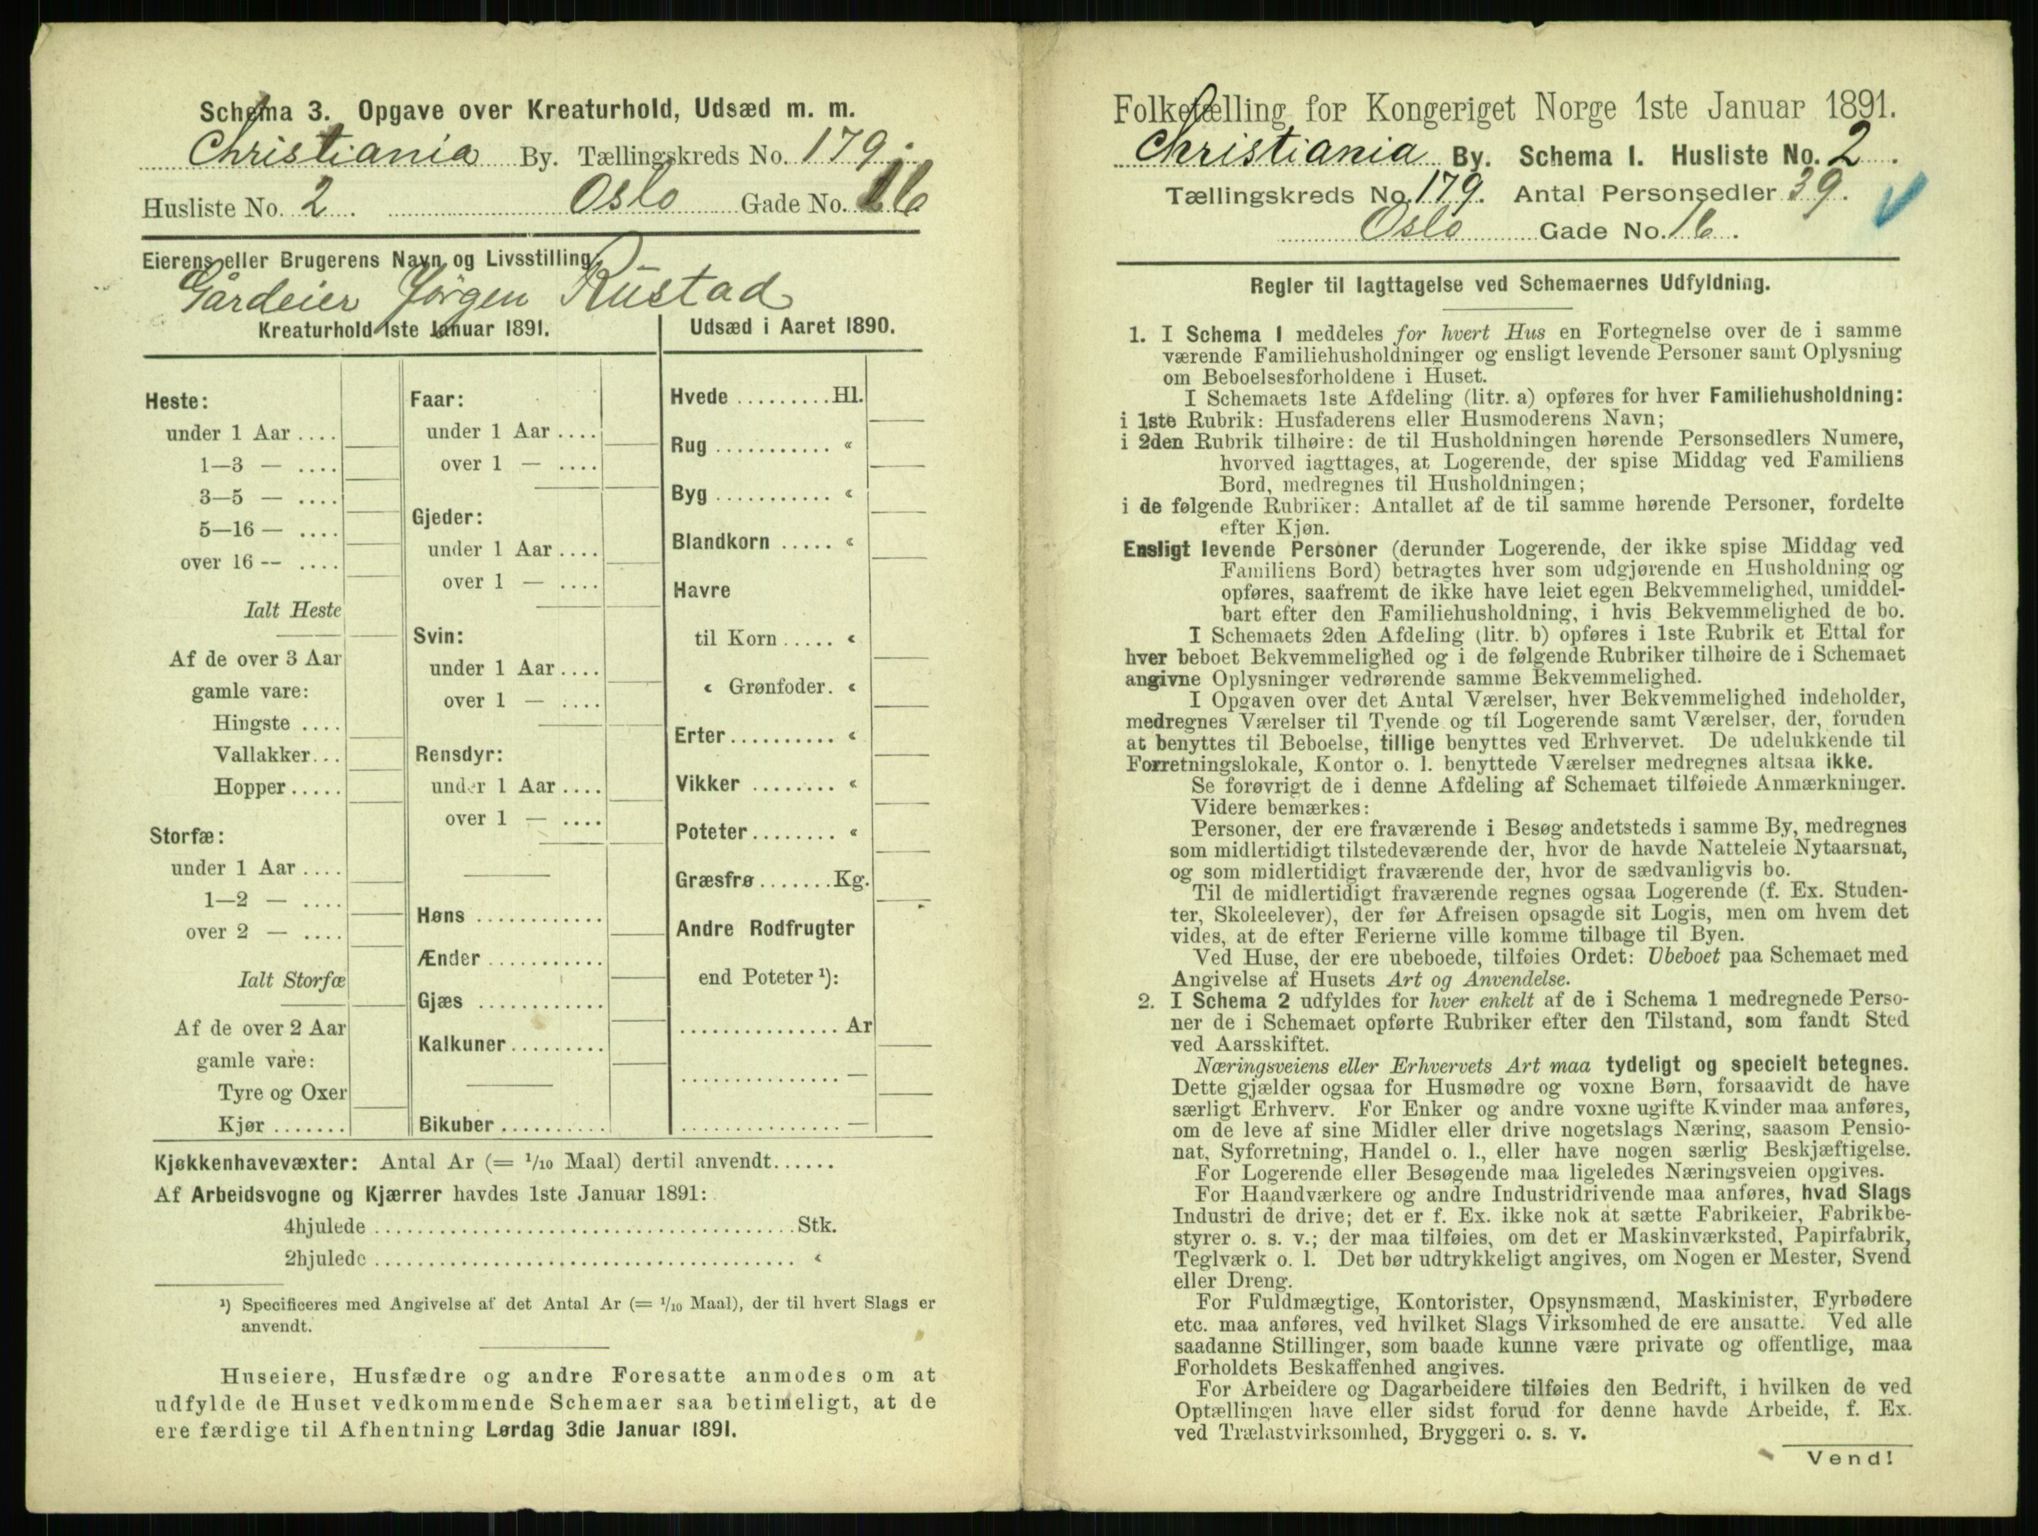 Schema 3. Opgave over Kreaturhold, Udsæd m. m.
Christiania By. Tællingskreds No. 179.
Husliste No. 2. Oslo Gade No. 16
Eierens eller Brugerens Navn og Livsstilling
Gårdeier Jørgen Rustad
Kreaturhold 1ste Januar 1891.
Heste:
under 1 Aar ....
1—3 — ....
3—5 — ....
5—16 — ....
over 16 -- ....
Ialt Heste
Af de over 3 Aar
gamle vare:
Hingste ....
Vallakker...
Hopper.....
Storfæ:
under 1 Aar ....
1—2 — ....
over 2 — ....
Ialt Storfæ
Af de over 2 Aar
gamle vare:
Tyre og Oxer
Kjør .......
Faar:
under 1 Aar ....
over 1 — ....
Gjeder:
under 1 Aar ....
over 1 — ....
Svin:
under 1 Aar ....
over 1 — ....
Rensdyr:
under 1 Aar ....
over 1 — ....
Høns ............
Ænder ...........
Gjæs ............
Kalkuner.........
Bikuber ..........
Udsæd i Aaret 1890.
Hvede .........Hl.
Rug ........... «
Byg ........... «
Blandkorn ..... «
Havre
til Korn ..... «
« Grønfoder. «
Erter.......... «
Vikker ........ «
Poteter........ «
Græsfrø .......Kg.
Andre Rodfrugter
end Poteter ¹):
............... Ar
............... —
............... —
Kjøkkenhavevæxter: Antal Ar (= 1/10 Maal) dertil anvendt......
Af Arbeidsvogne og Kjærrer havdes 1ste Januar 1891:
4hjulede ....................................... Stk.
2hjulede ....................................... «
¹) Specificeres med Angivelse af det Antal Ar (= 1/10 Maal), der til hvert Slags er
anvendt.
Huseiere, Husfædre og andre Foresatte anmodes om at
udfylde de Huset vedkommende Schemaer saa betimeligt, at de
ere færdige til Afhentning Lørdag 3die Januar 1891.
Folketælling for Kongeriget Norge 1ste Januar 1891.
Christiania By. Schema 1. Husliste No. 2.
Tællingskreds No. 179. Antal Personsedler 39.
Oslo Gade No. 16.
Regler til Iagttagelse ved Schemaernes Udfyldning.
1. I Schema 1 meddeles for hvert Hus en Fortegnelse over de i samme
værende Familiehusholdninger og ensligt levende Personer samt Oplysning
om Beboelsesforholdene i Huset.
I Schemaets 1ste Afdeling (litr. a) opføres for hver Familiehusholdning:
i 1ste Rubrik: Husfaderens eller Husmoderens Navn;
i 2den Rubrik tilhøire: de til Husholdningen hørende Personsedlers Numere,
hvorved iagttages, at Logerende, der spise Middag ved Familiens
Bord, medregnes til Husholdningen;
i de følgende Rubriker: Antallet af de til samme hørende Personer, fordelte
efter Kjøn.
Ensligt levende Personer (derunder Logerende, der ikke spise Middag ved
Familiens Bord) betragtes hver som udgjørende en Husholdning og
opføres, saafremt de ikke have leiet egen Bekvemmelighed, umiddel-
bart efter den Familiehusholdning, i hvis Bekvemmelighed de bo.
I Schemaets 2den Afdeling (litr. b) opføres i 1ste Rubrik et Ettal for
hver beboet Bekvemmelighed og i de følgende Rubriker tilhøire de i Schemaet
angivne Oplysninger vedrørende samme Bekvemmelighed.
I Opgaven over det Antal Værelser, hver Bekvemmelighed indeholder,
medregnes Værelser til Tyende og til Logerende samt Værelser, der, foruden
at benyttes til Beboelse, tillige benyttes ved Erhvervet. De udelukkende til
Forretningslokale, Kontor o. l. benyttede Værelser medregnes altsaa ikke.
Se forøvrigt de i denne Afdeling af Schemaet tilføiede Anmærkninger.
Videre bemærkes:
Personer, der ere fraværende i Besøg andetsteds i samme By, medregnes
som midlertidigt tilstedeværende der, hvor de havde Natteleie Nytaarsnat,
og som midlertidigt fraværende der, hvor de sædvanligvis bo.
Til de midlertidigt fraværende regnes ogsaa Logerende (f. Ex. Studen-
ter, Skoleelever), der før Afreisen opsagde sit Logis, men om hvem det
vides, at de efter Ferierne ville komme tilbage til Byen.
Ved Huse, der ere ubeboede, tilføies Ordet: Ubeboet paa Schemaet med
Angivelse af Husets Art og Anvendelse.
2. I Schema 2 udfyldes for hver enkelt af de i Schema 1 medregnede Perso-
ner de i Schemaet opførte Rubriker efter den Tilstand, som fandt Sted
ved Aarsskiftet.
Næringsveiens eller Erhvervets Art maa tydeligt og specielt betegnes.
Dette gjælder ogsaa for Husmødre og voxne Børn, forsaavidt de have
særligt Erhverv. For Enker og andre voxne ugifte Kvinder maa anføres,
om de leve af sine Midler eller drive nogetslags Næring, saasom Pensio-
nat, Syforretning, Handel o. l., eller have nogen særlig Beskjæftigelse.
For Logerende eller Besøgende maa ligeledes Næringsveien opgives.
For Haandværkere og andre Industridrivende maa anføres, hvad Slags
Industri de drive; det er f. Ex. ikke nok at sætte Fabrikeier, Fabrikbe-
styrer o. s. v.; der maa tilføies, om det er Maskinværksted, Papirfabrik,
Teglværk o. l. Det bør udtrykkeligt angives, om Nogen er Mester, Svend
eller Dreng.
For Fuldmægtige, Kontorister, Opsynsmænd, Maskinister, Fyrbødere
etc. maa anføres, ved hvilket Slags Virksomhed de ere ansatte. Ved alle
saadanne Stillinger, som baade kunne være private og offentlige, maa
Forholdets Beskaffenhed angives.
For Arbeidere og Dagarbeidere tilføies den Bedrift, i hvilken de ved
Optællingen have eller sidst forud for denne havde Arbeide, f. Ex.
ved Trælastvirksomhed, Bryggeri o. s. v.
Vend!